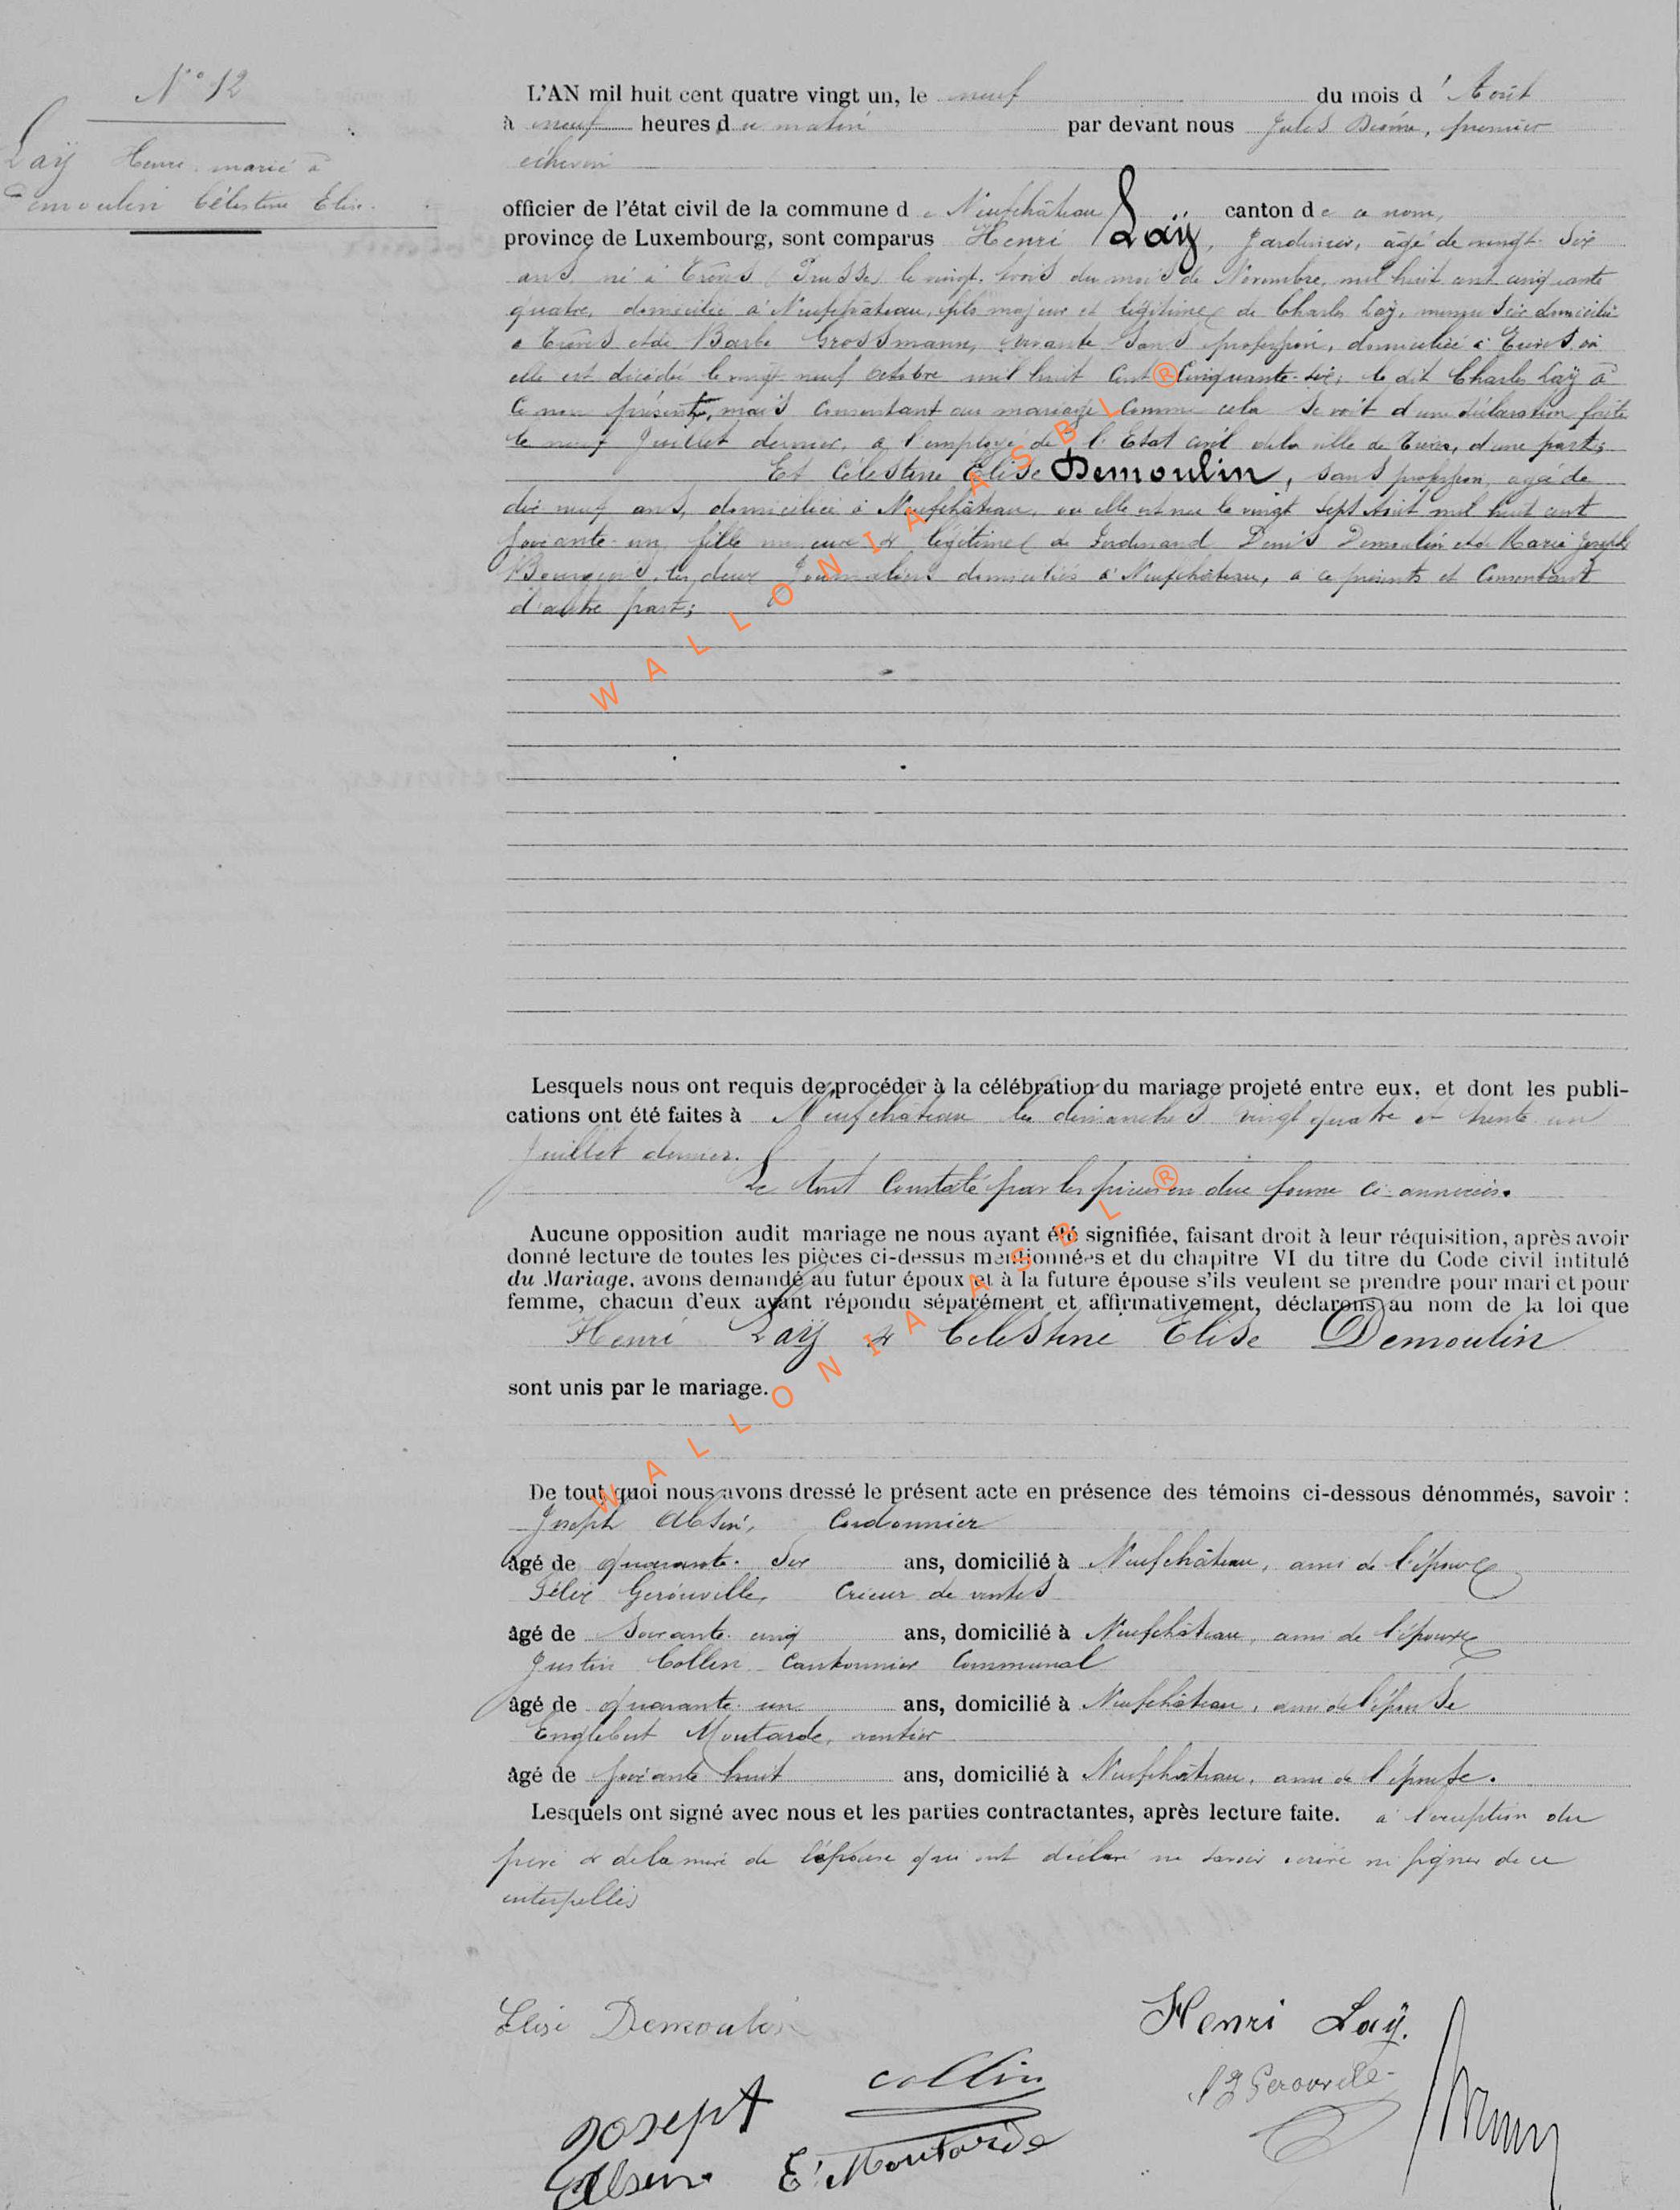 N° 12
Laÿ Henri marié à
Demoulin Célestine Elise.
L'AN mil huit cent quatre vingt un, le neuf du mois d'Août
à neuf heures du matin par devant nous Jules, premier
échevin
officier de l'état civil de la commune de Neufchâteau canton de ce nom,
province de Luxembourg, sont comparus Henri Laÿ, Jardinier, âgé de vingt-six
ans, né à Trèves (Prusse) le vingt-trois du mois de Novembre, mil huit cent cinquante
quatre, domicilié à Neufchâteau, fils majeur et légitime de Charles Laÿ, domicilié
à Trèves et de Barbe Grossmann, vivante sans profession, domiciliée à Trèves où
elle est décédée le vingt neuf octobre mil huit cent cinquante-six; le dit Charles Laÿ à
ce non présent, mais consentant au mariage comme cela se voit d'une déclaration faite
le neuf Juillet dernier, à l'employé de l'Etat civil de la ville de Trèves, d'une part;
Et Célestine Elise Demoulin, sans profession, agée de
dix neuf ans, domiciliée à Neufchâteau, où elle est née le vingt sept Août mil huit cent
soixante-un, fille mineure et légitime de Ferdinand Denis Demoulin et de Marie Joseph
Bourgeois, les deux Journaliers domiciliés à Neufchâteau, à ce présents et consentant
d'autre part;
Lesquels nous ont requis de procéder à la célébration du mariage projeté entre eux, et dont les publi-
cations ont été faites à Neufchâteau les dimanches vingt quatre et trente un
Juillet dernier.
Le tout constaté par les pièces en due forme ci-annexées.
Aucune opposition audit mariage ne nous ayant été signifiée, faisant droit à leur réquisition, après avoir
donné lecture de toutes les pièces ci-dessus mentionnées et du chapitre VI du titre du Code civil intitulé
du Mariage, avons demandé au futur époux et à la future épouse s'ils veulent se prendre pour mari et pour
femme, chacun d'eux ayant répondu séparément et affirmativement, déclarons au nom de la loi que
Henri Laÿ & Celestine Elise Demoulin
sont unis par le mariage.
De tout quoi nous avons dressé le présent acte en présence des témoins ci-dessous dénommés, savoir :
Joseph Alsin, Cordonnier
âgé de quarante-six ans, domicilié à Neufchâteau, ami de l'époux
Félix Gerouville, Crieur de ventes
âgé de soixante-cinq ans, domicilié à Neufchâteau, ami de l'époux
Justin Collin Cantonnier Communal
âgé de quarante-un ans, domicilié à Neufchâteau, ami de l'épouse
Englebert Moutarde, rentier
âgé de soixante huit ans, domicilié à Neufchâteau, ami de l'épouse.
Lesquels ont signé avec nous et les parties contractantes, après lecture faite. à l'exception du
père & de la mère de l'épouse qui ont déclaré ne savoir écrire ni signer de ce
interpellés
Elise Demoulin
Henri Laÿ.
Collin
Gerouville
Joseph
Alsin
E. Moutarde
WALLONIA ASBL®
WALLONIA ASBL®